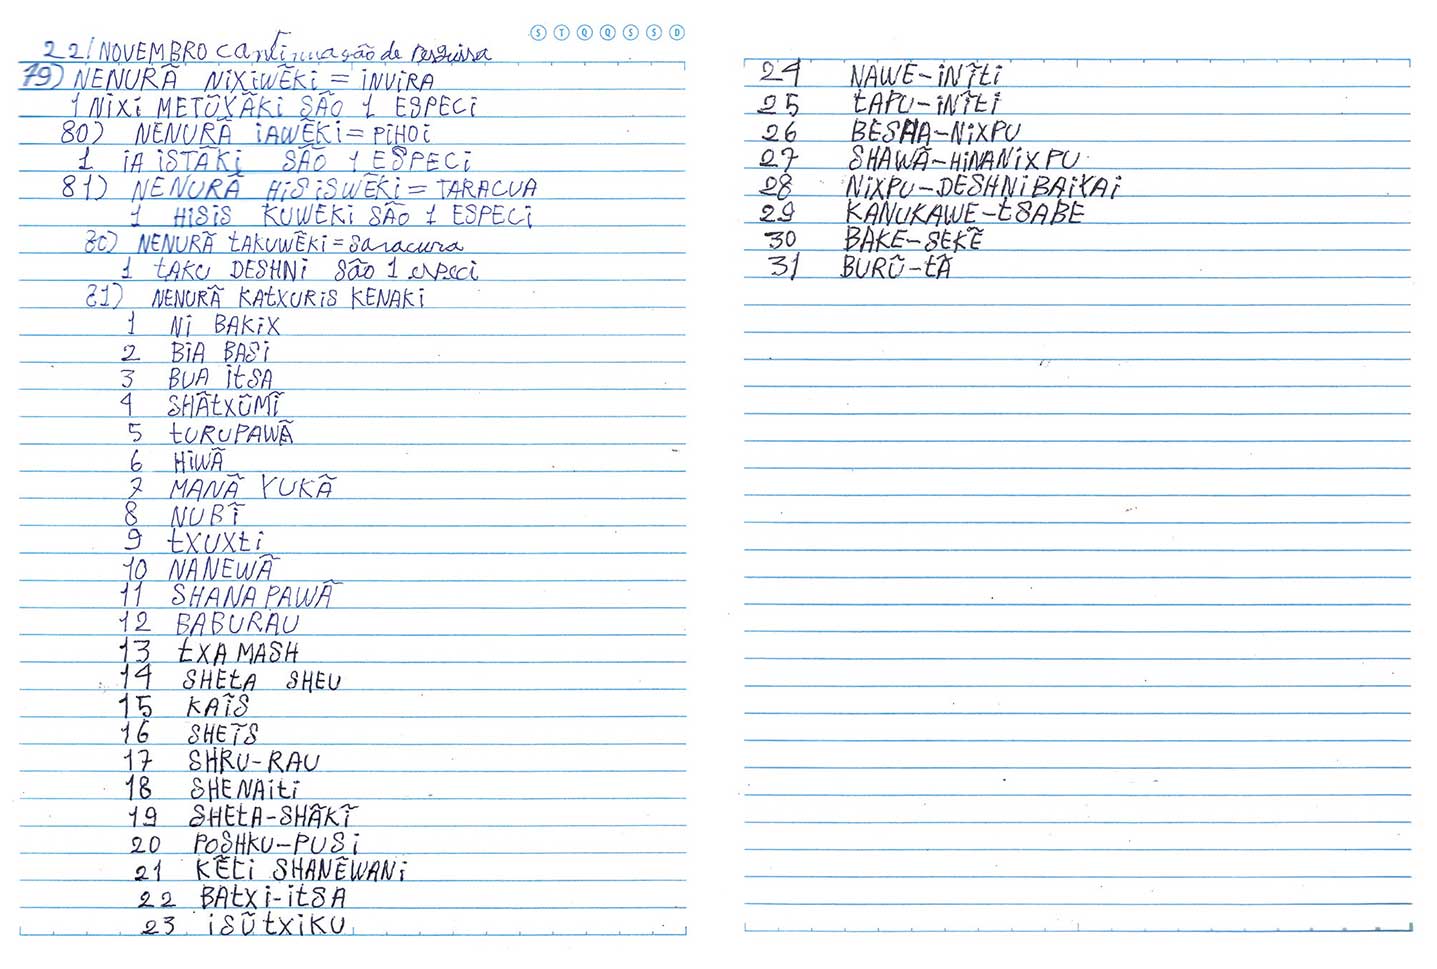 S T Q Q S S D
22/NOVEMBRO continuação de pesquisa
79) NENURÃ NIXIWẼKI = INVIRA
1 NIXI METŨXÃKI SÃO 1 ESPECI
80) NENURÃ IAWẼKI = PIHOI
1 IA ISTÃKI SÃO 1 ESPECI
81) NENURÃ HISISWẼKI = TARACUA
1 HISIS KUWẼKI SÃO 1 ESPECI
80) NENURÃ TAKUWẼKI = Saracura
1 TAKU DESHNI São 1 especi
81) NENURÃ KATXURIS KENAKI
1 NI BAKIX
2 BIA BASI
3 BUA ITSA
4 SHÃTXŨMĨ
5 TURUPAWÃ
6 HIWÃ
7 MANÃ YUKÃ
8 NUBĨ
9 TXUXTI
10 NANEWÃ
11 SHANAPAWÃ
12 BABURAU
13 TXAMASH
14 SHETA SHEU
15 KAĨS
16 SHEĨS
17 SHRU-RAU
18 SHENAITI
19 SHETA-SHÃKĨ
20 POSHKU-PUSI
21 KẼTI SHANẼWANI
22 BATXI-ITSA
23 ISŨTXIKU
24 NAWE-INĨTI
25 TAPU-INĨTI
26 BESHA-NIXPU
27 SHAWÃ-HINANIXPU
28 NIXPU-DESHNIBAIYAI
29 KANUKAWE-TSABE
30 BAKE-SEKẼ
31 BURŨ-TÃ